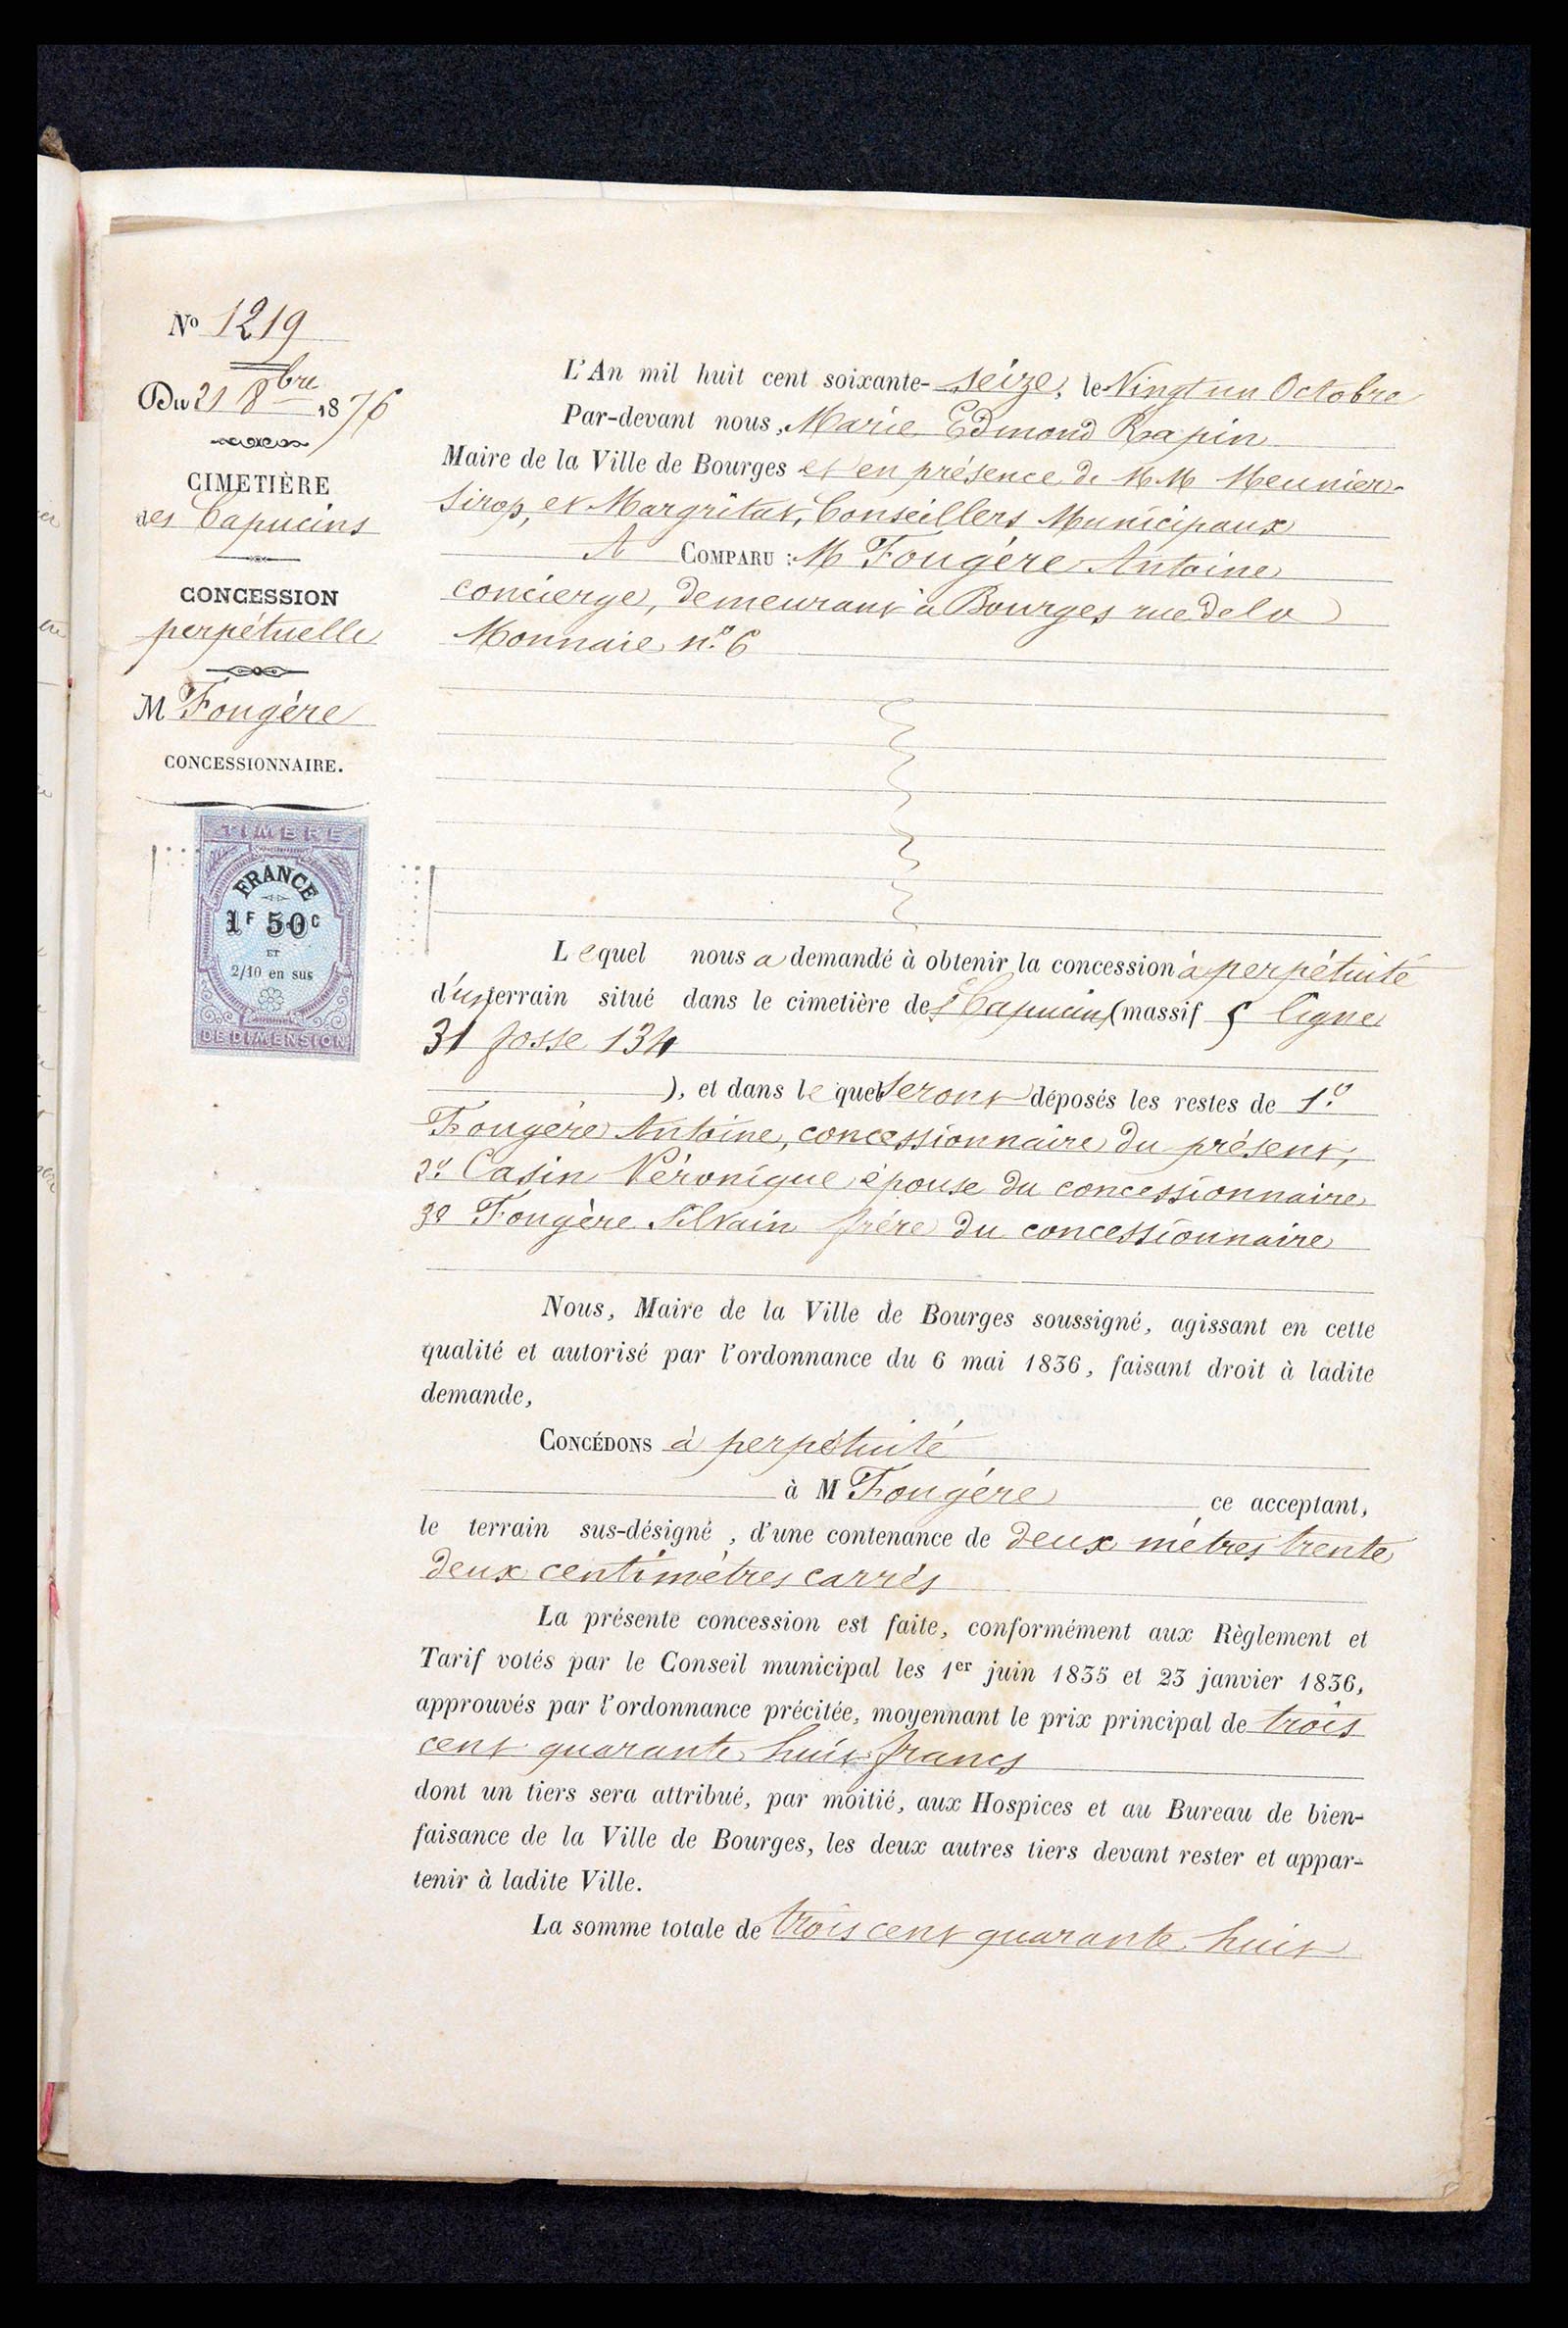 Nº 1219
Du 21 8bre 1876
CIMETIÈRE
des Capucins
CONCESSION
perpétuelle
M Fougère
CONCESSIONNAIRE.
TIMBRE
FRANCE
1F 50C
ET
2/10 en sus
DE DIMENSION
L'An mil huit cent soixante-seize, le Vingt un Octobre
Par-devant nous, Marie Edmond Rapin
Maire de la Ville de Bourges et en présence de MM Meunier-
Sirop, et Margritat, Conseillers Municipaux
A COMPARU : M Fougère Antoine
concierge, demeurant à Bourges rue de la
Monnaie nº 6
Lequel nous a demandé à obtenir la concession à perpétuité
d'un terrain situé dans le cimetière des Capucins (massif 5 ligne
31 fosse 134
), et dans lequel seront déposés les restes de 1º
Fougère Antoine, concessionnaire du présent,
2º Casin Véronique épouse du concessionnaire
3º Fougère Silvain frère du concessionnaire
Nous, Maire de la Ville de Bourges soussigné, agissant en cette
qualité et autorisé par l'ordonnance du 6 mai 1836, faisant droit à ladite
demande,
CONCÉDONS à perpétuité
à M Fougère ce acceptant,
le terrain sus-désigné, d'une contenance de deux mètres trente
deux centimètres carrés
La présente concession est faite, conformément aux Règlement et
Tarif votés par le Conseil municipal les 1er juin 1835 et 23 janvier 1836,
approuvés par l'ordonnance précitée, moyennant le prix principal de trois
cent quarante huit francs
dont un tiers sera attribué, par moitié, aux Hospices et au Bureau de bien-
faisance de la Ville de Bourges, les deux autres tiers devant rester et appar-
tenir à ladite Ville.
La somme totale de trois cent quarante huit